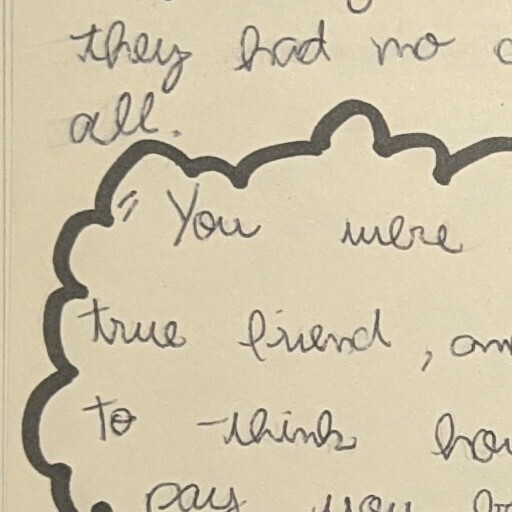 they had no
all.
"You were
true friend,
to think
pay you